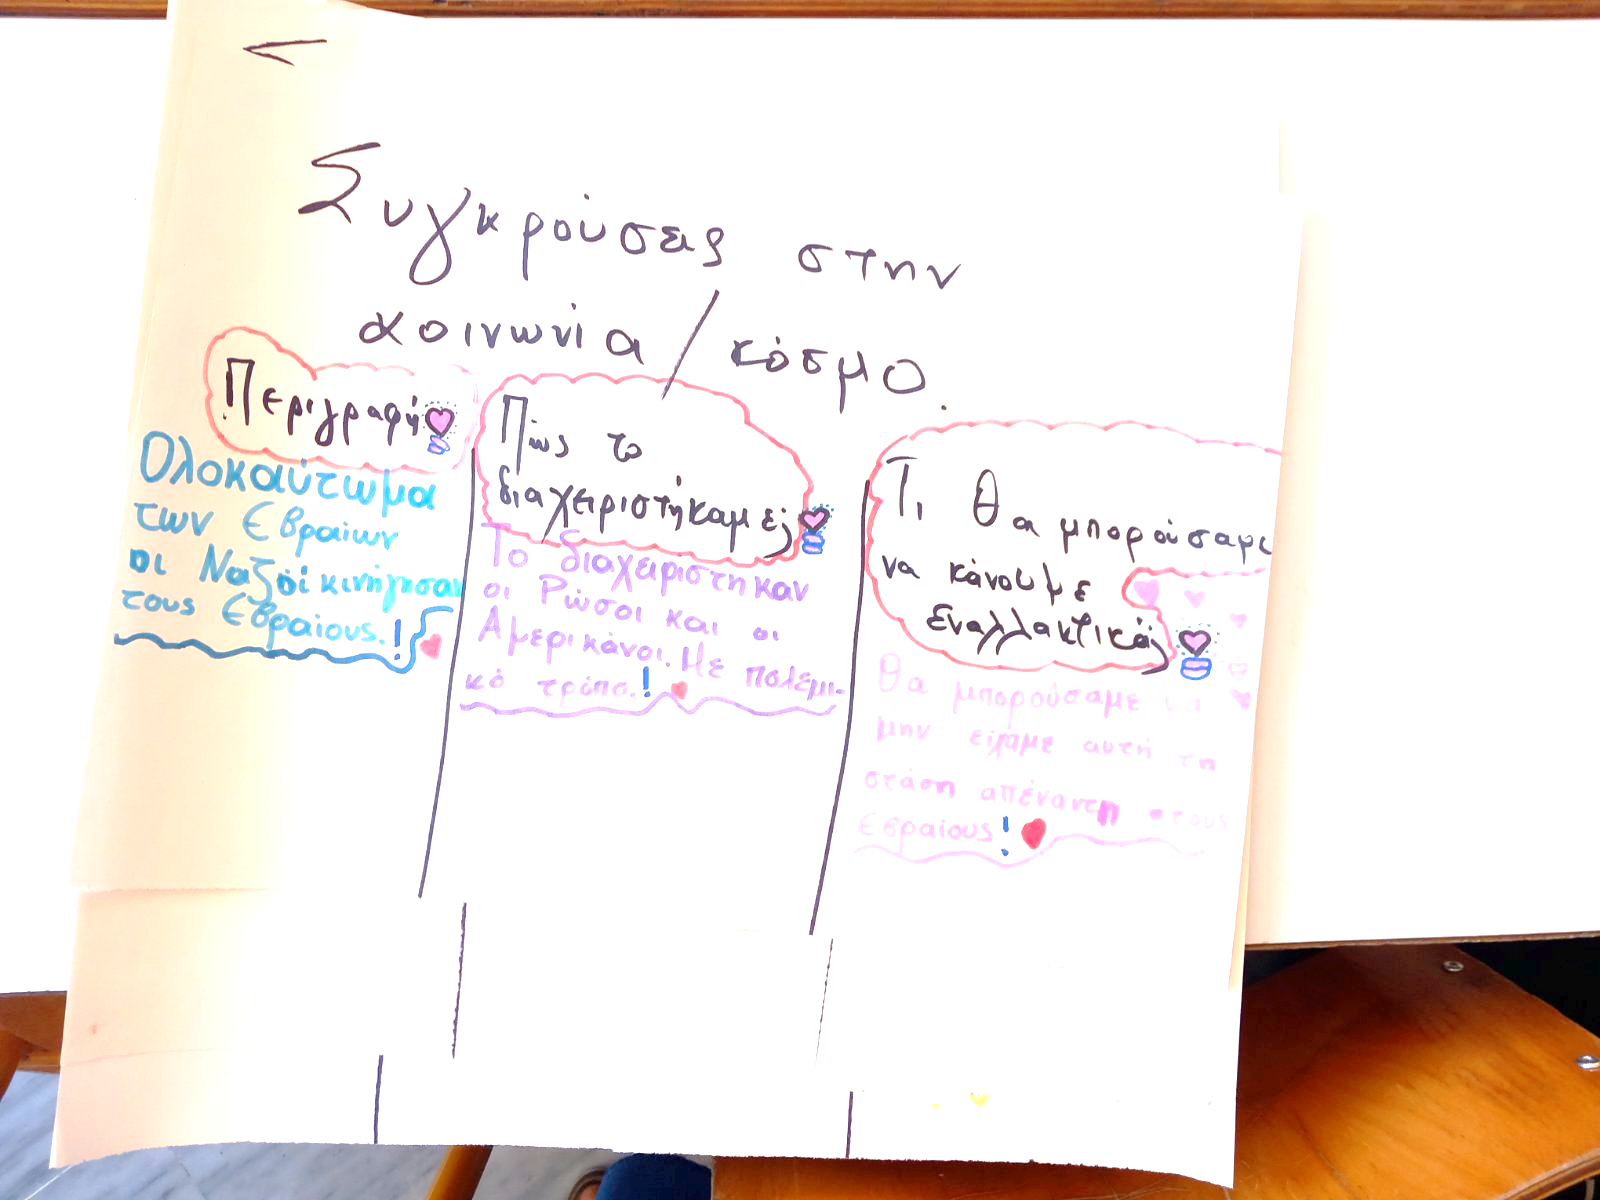 Συγκρούσεις στην
κοινωνία / κόσμο.
Περιγραφή
Ολοκαύτωμα
των Εβραίων
οι Ναζοί κινήγησαν
τους Εβραίους.!
Πώς το
διαχειριστήκαμε;
Το διαχειριστηκαν
οι Ρώσοι και οι
Αμερικάνοι. Με πολεμι-
κό τρόπο.!
Τι θα μπορούσαμε
να κάνουμε
εναλλακτικά;
Θα μπορούσαμε να
μην είχαμε αυτή τη
στάση απέναντη στους
Εβραίους!